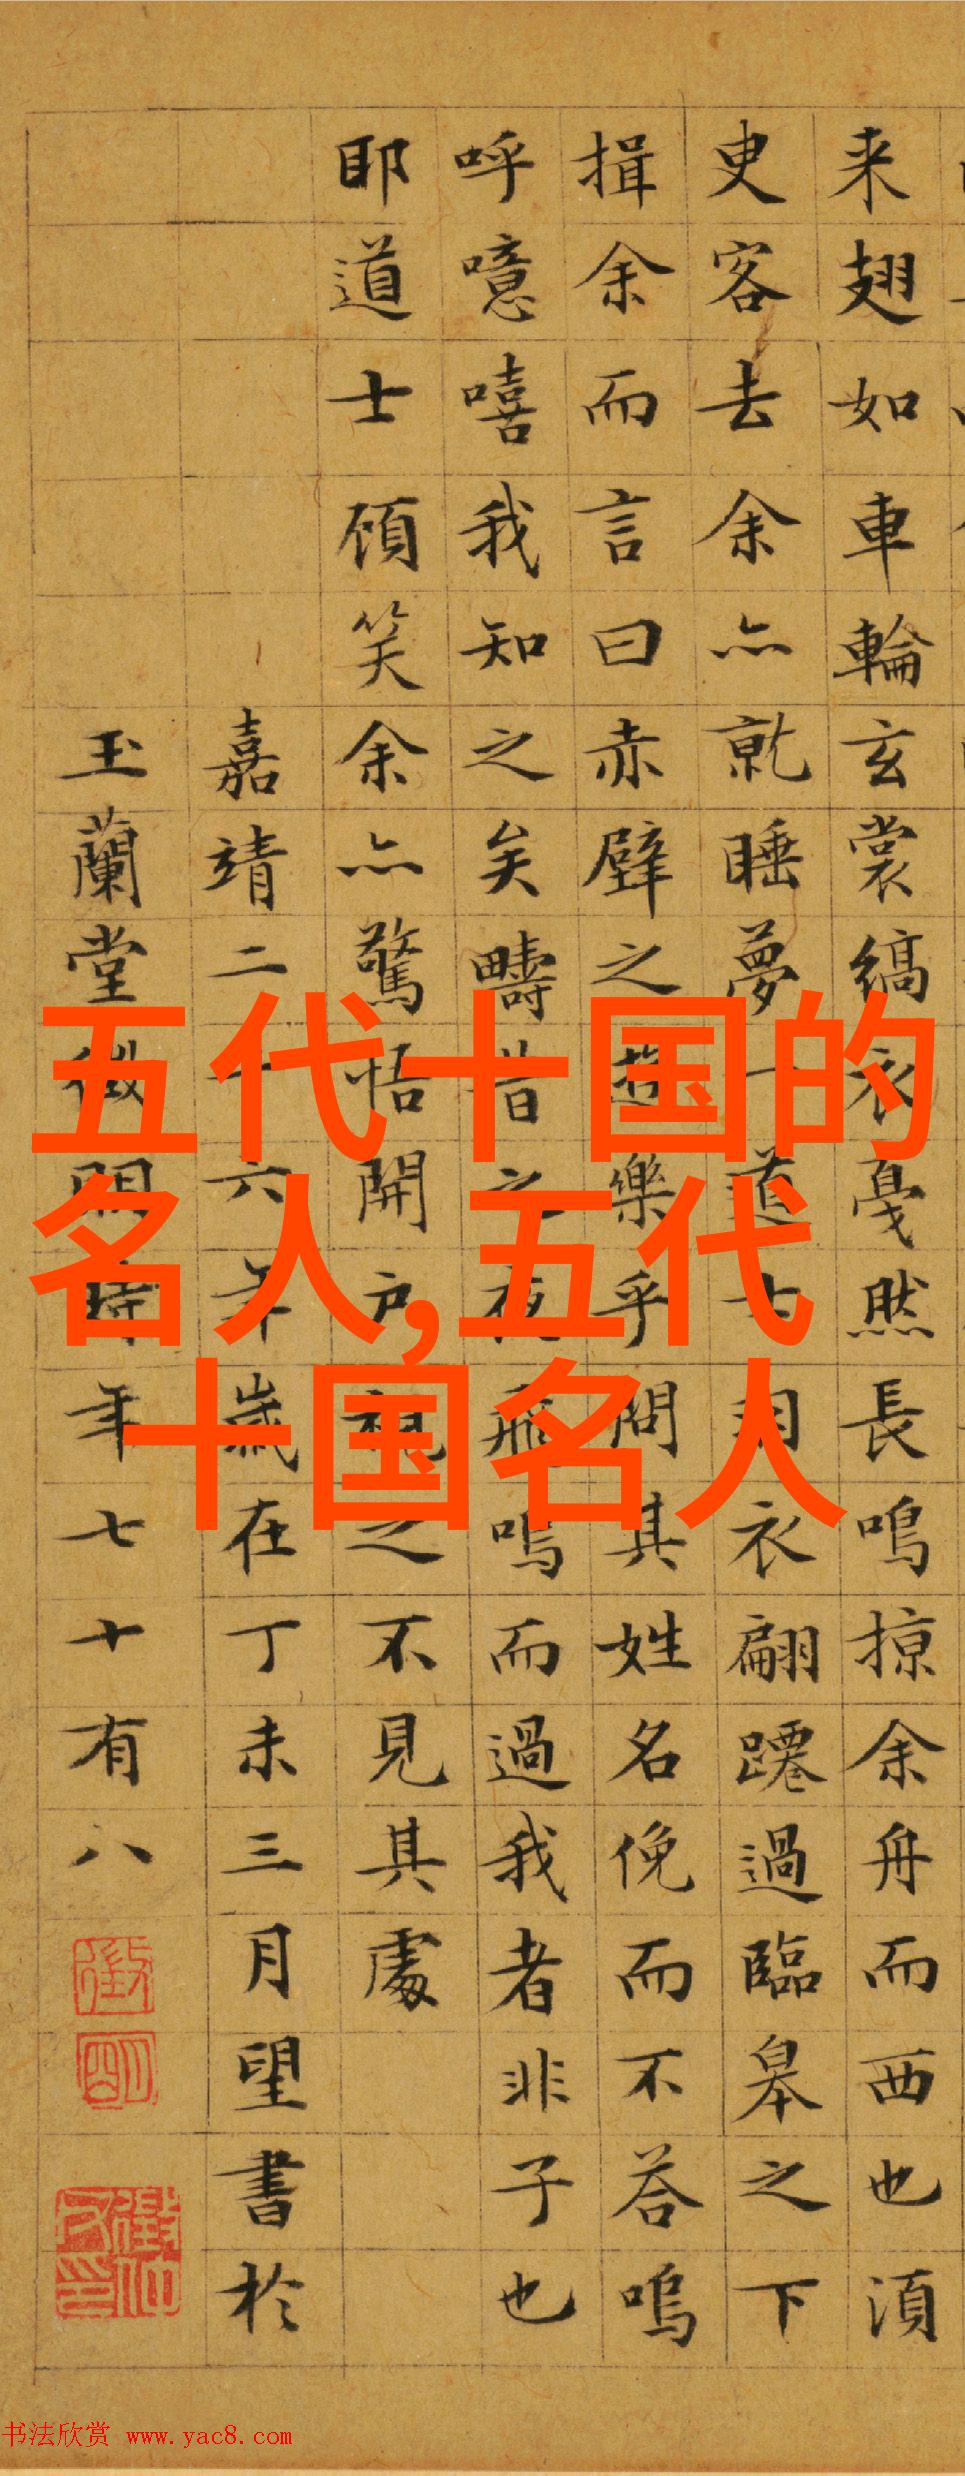 来翅如車輪玄裳縞衣戛然長鳴掠余舟而西也湏
臾客去余亦就睡夢一道士羽衣翩躚過臨皋之下
揖余而言曰赤壁之遊樂乎問其姓名俛而不荅嗚
呼噫嘻我知之矣疇昔之夜飛鳴而過我者非子也
耶道士顧笑余亦驚悟開户視之不見其處
嘉靖二十六年歲在丁未三月望書於
玉蘭堂徵明時年七十有八
徵
明
五代十国的
名人,五代
十国名人
书法欣赏 www.yac8.com